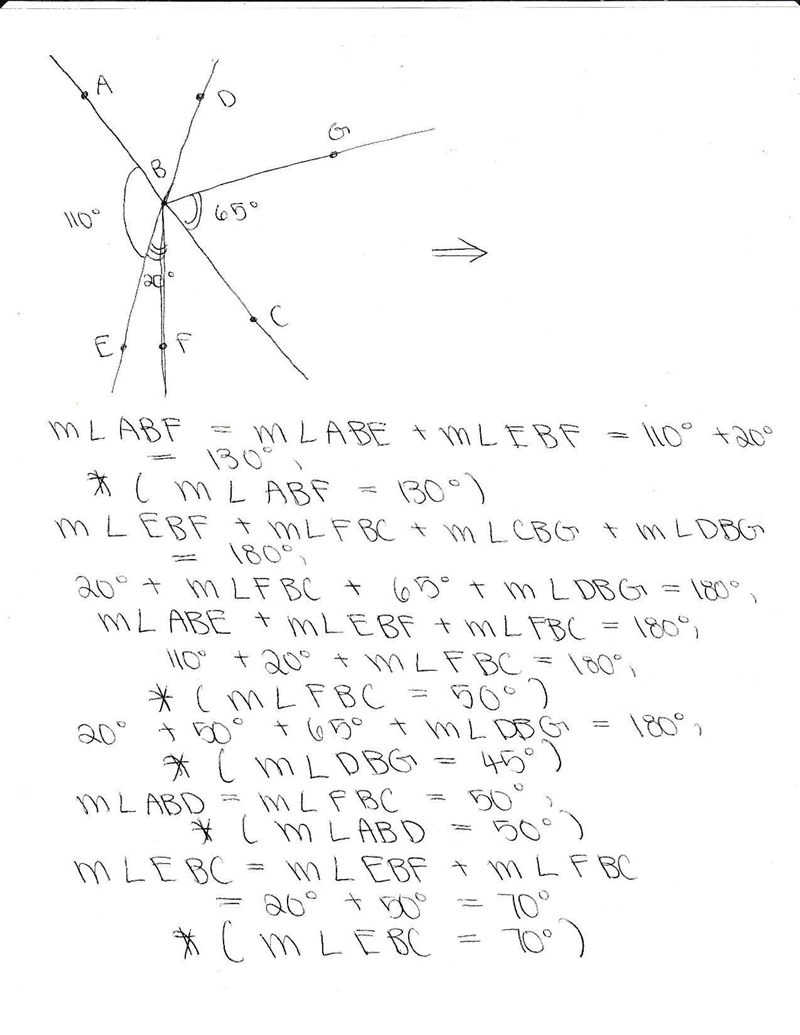 A
D
G
B
110°
65°
20°
C
E
F
⇒
m∠ABF = m∠ABE + m∠EBF = 110° + 20°
= 130°,
* ( m∠ABF = 130° )
m∠EBF + m∠FBC + m∠CBG + m∠DBG
= 180°,
20° + m∠FBC + 65° + m∠DBG = 180°,
m∠ABE + m∠EBF + m∠FBC = 180°,
110° + 20° + m∠FBC = 180°,
* ( m∠FBC = 50° )
20° + 50° + 65° + m∠DBG = 180°,
* ( m∠DBG = 45° )
m∠ABD = m∠FBC = 50°,
* ( m∠ABD = 50° )
m∠EBC = m∠EBF + m∠FBC
= 20° + 50° = 70°
* ( m∠EBC = 70° )